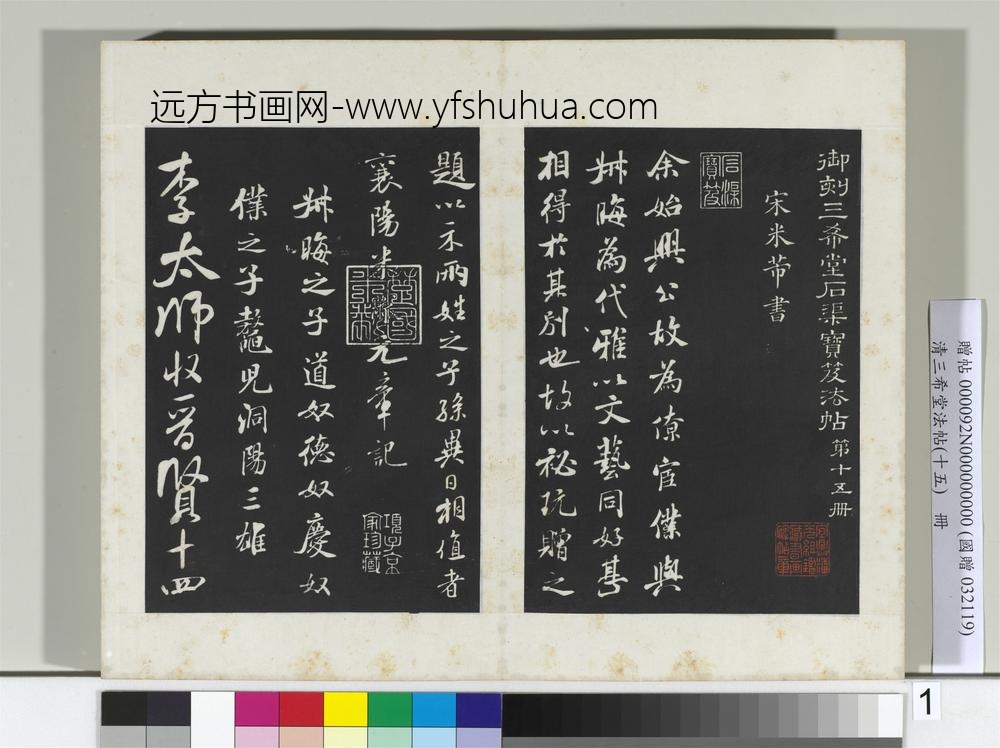 远方书画网-www.yfshuhua.com
御刻三希堂石渠寶笈法帖 第十五冊
宋米芾書
石渠寶笈
余始興公故為僚宦僕與
叔晦為代雅以文藝同好甚
相得於其別也故以秘玩贈之
題以示兩姓之子孫異日相值者
襄陽米黻元章記
項子京家珍藏
叔晦之子道奴德奴慶奴
僕之子鼇兒洞陽三雄
李太師收晉賢十四
贈帖 000092N000000000 (國贈 032119)
清三希堂法帖(十五) 冊
1